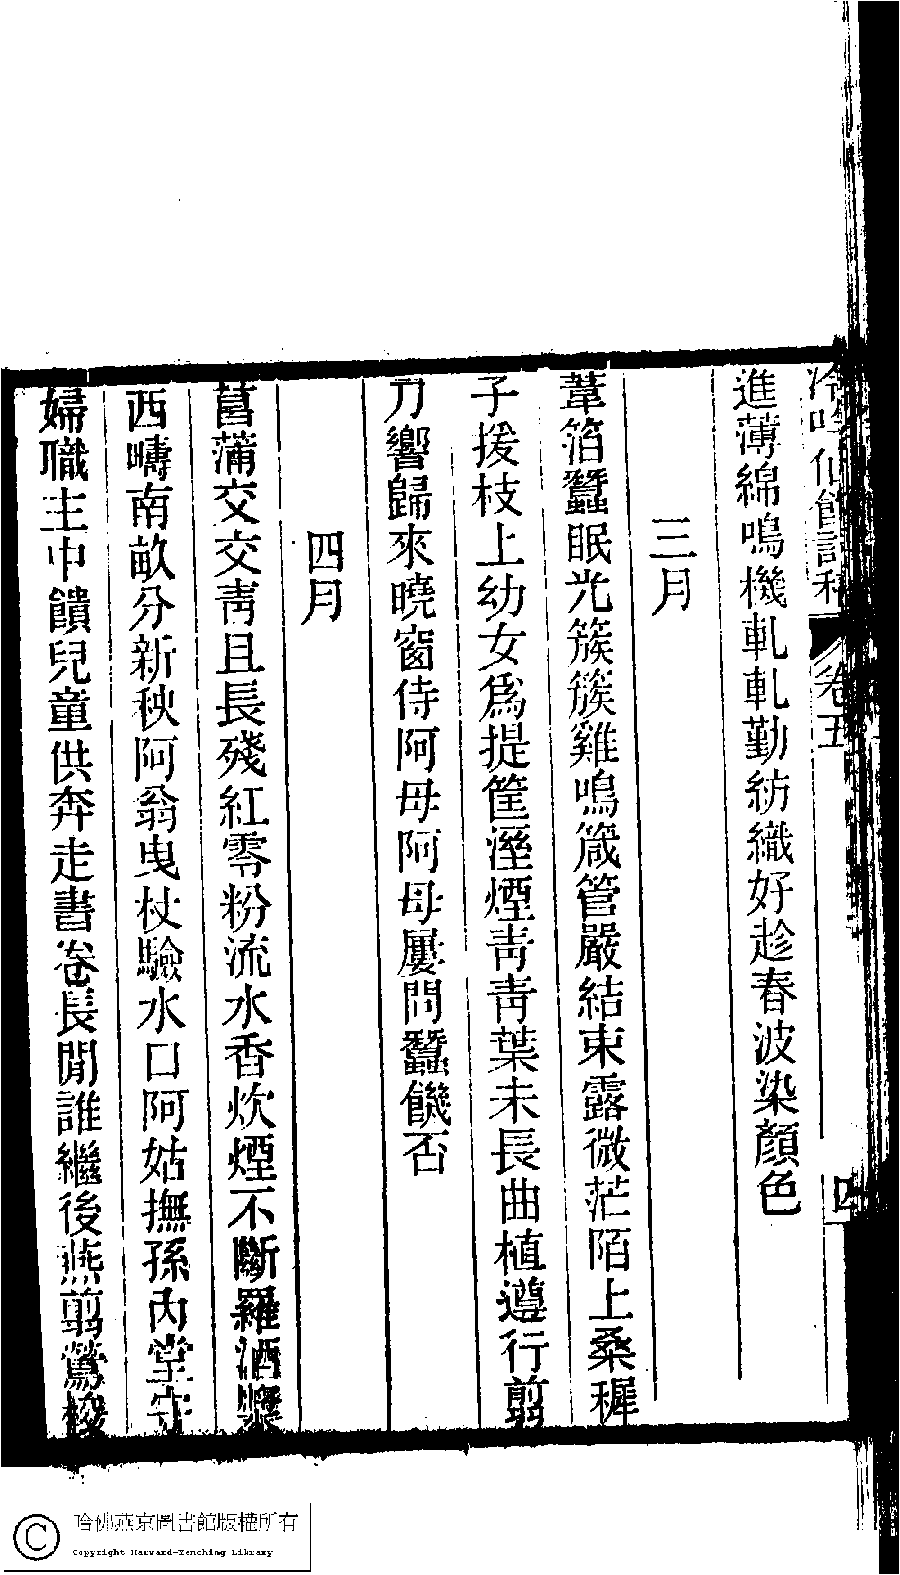 冷吟仙館詩稿 卷五 四
進薄綿鳴機軋軋勤紡織好趁春波染顏色
三月
葦箔蠶眠光簇簇雞鳴箴管嚴結束露微茫陌上桑稺
子援枝上幼女爲提筐溼煙靑靑葉未長曲植遵行剪
刀響歸來曉窗侍阿母阿母屢問蠶饑否
四月
菖蒲交交靑且長殘紅零粉流水香炊煙不斷羅酒漿
西疇南畝分新秧阿翁曳杖驗水口阿姑撫孫內堂守
婦職主中饋兒童供奔走書卷長閒誰繼後燕剪鶯梭
哈佛燕京圖書館版權所有
Copyright Harvard-Yenching Library